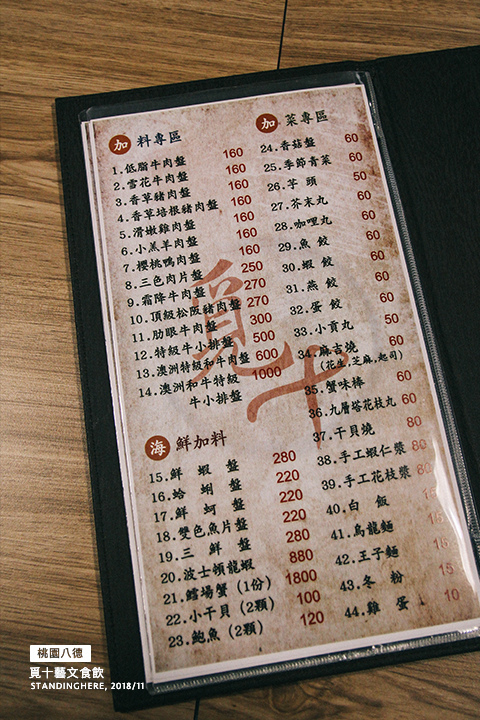 加 料專區
1.低脂牛肉盤 160
2.雪花牛肉盤 160
3.香草豬肉盤 160
4.香草培根豬肉盤 160
5.滑嫩雞肉盤 160
6.小羔羊肉盤 160
7.櫻桃鴨肉盤 160
8.三色肉片盤 250
9.霜降牛肉盤 270
10.頂級松阪豬肉盤 270
11.肋眼牛肉盤 300
12.特級牛小排盤 500
13.澳洲特級和牛肉盤 600
14.澳洲和牛特級 1000
牛小排盤
海 鮮加料
15.鮮蝦盤 280
16.蛤蜊盤 220
17.鮮蚵盤 220
18.雙色魚片盤 220
19.三鮮盤 280
20.波士頓龍蝦 880
21.鱈場蟹(1份) 1800
22.小干貝(2顆) 100
23.鮑魚(2顆) 120
加 菜專區
24.香菇盤 60
25.季節青菜 60
26.芋頭 50
27.芥末丸 60
28.咖哩丸 60
29.魚餃 60
30.蝦餃 60
31.燕餃 60
32.蛋餃 60
33.小貢丸 50
34.麻吉燒 60
(花生,芝麻,起司)
35.蟹味棒 60
36.九層塔花枝丸 60
37.干貝燒 80
38.手工蝦仁漿 80
39.手工花枝漿 60
40.白飯
41.烏龍麵 15
42.王子麵 15
43.冬粉 15
44.雞蛋 10
覓十
桃園八德
覓十藝文食飲
STANDINGHERE, 2018/11